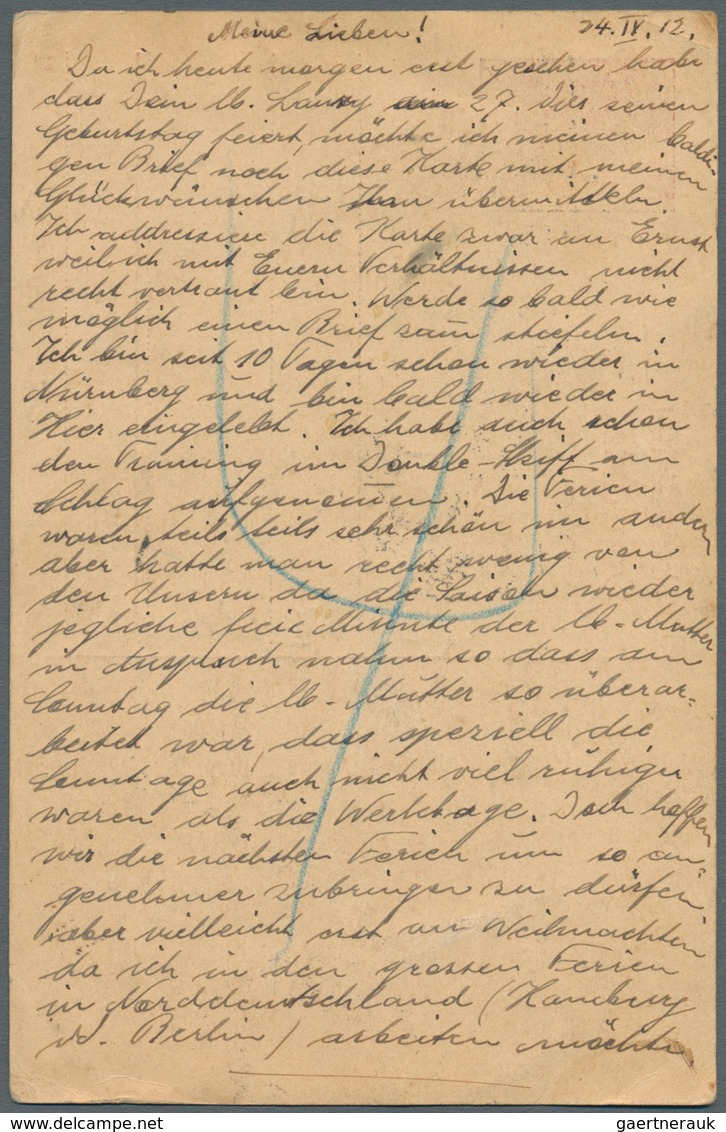 Meine Lieben! 24. IV. 12.
Da ich heute morgen erst gesehen habe
dass Dein lb. 27. dies seinen
Geburtstag feiert, möchte ich meinen baldi-
gen Brief noch diese Karte mit meinen
Glückwünschen übermitteln.
Ich addressiere die Karte zwar an Ernst
weil ich mit Euern Verhältnissen nicht
recht vertraut bin. Werde so bald wie
möglich einen Brief zum stiefeln.
Ich bin seit 10 Tagen schon wieder in
Nürnberg und bin bald wieder in
Hier eingelebt. Ich habe auch schon
den Training im Double-Skiff am
Schlag aufgenommen. Die Ferien
waren teils teils sehr schön im andern
aber hatte man recht wenig von
den Unsern da die Saison wieder
jegliche freie Minute der lb. Mutter
in Anspruch nahm so dass am
Sonntag die lb. Mutter so überar-
beitet war, dass speziell die
Sonntage auch nicht viel ruhiger
waren als die Werktage. Doch hoffen
wir die nächsten Ferien um so an-
genehmer zubringen zu dürfen
aber vielleicht erst an Weihnachten
da ich in den grossen Ferien
in Norddeutschland (Hamburg
od. Berlin) arbeiten möchte.
gaertnerauk